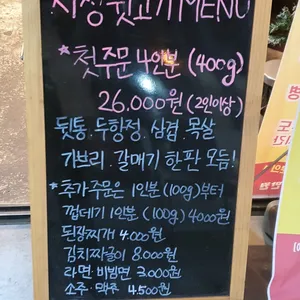 뒷고기 MENU
*첫주문 4인분 (400g)
26.000원 (2인이상)
뒷통. 두항정. 삼겹. 목살
가브리. 갈매기 한판 모듬!
*추가주문은 1인분 (100g)부터
껍데기 1인분 (100g) 4000원
된장찌개 4.000원
김치짜글이 8.000원
라면. 비빔면 3.000원
소주. 맥주 4.500원